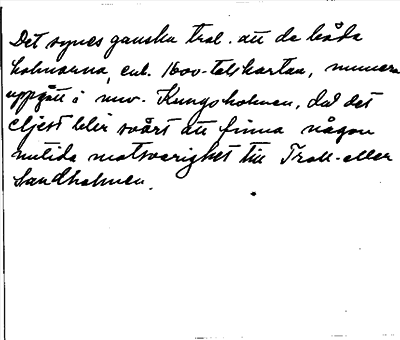 Det synes ganska trol. att de båda
holmarna, enl. 1600-talskartan, numera
uppgått i nuv. Kungsholmen, då det
eljest blir svårt att finna någon
nutida motsvarighet till Troll- eller
Sandholmen.